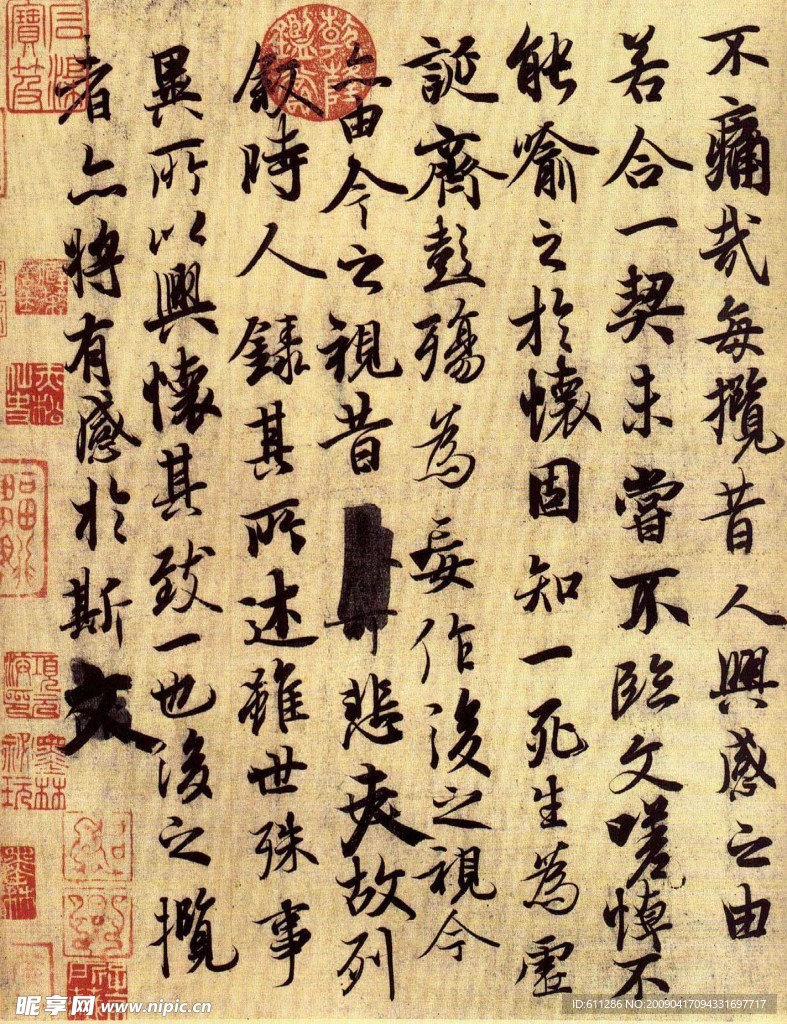 不痛哉每攬昔人興感之由
若合一契未嘗不臨文嗟悼不
能喻之於懷固知一死生為虛
誕齊彭殤為妄作後之視今
亦由今之視昔悲夫故列
敘時人錄其所述雖世殊事
異所以興懷其致一也後之攬
者亦將有感於斯文
乾隆鑑賞
昵享网 www.nipic.cn
ID:611286 NO:20090417094331697717